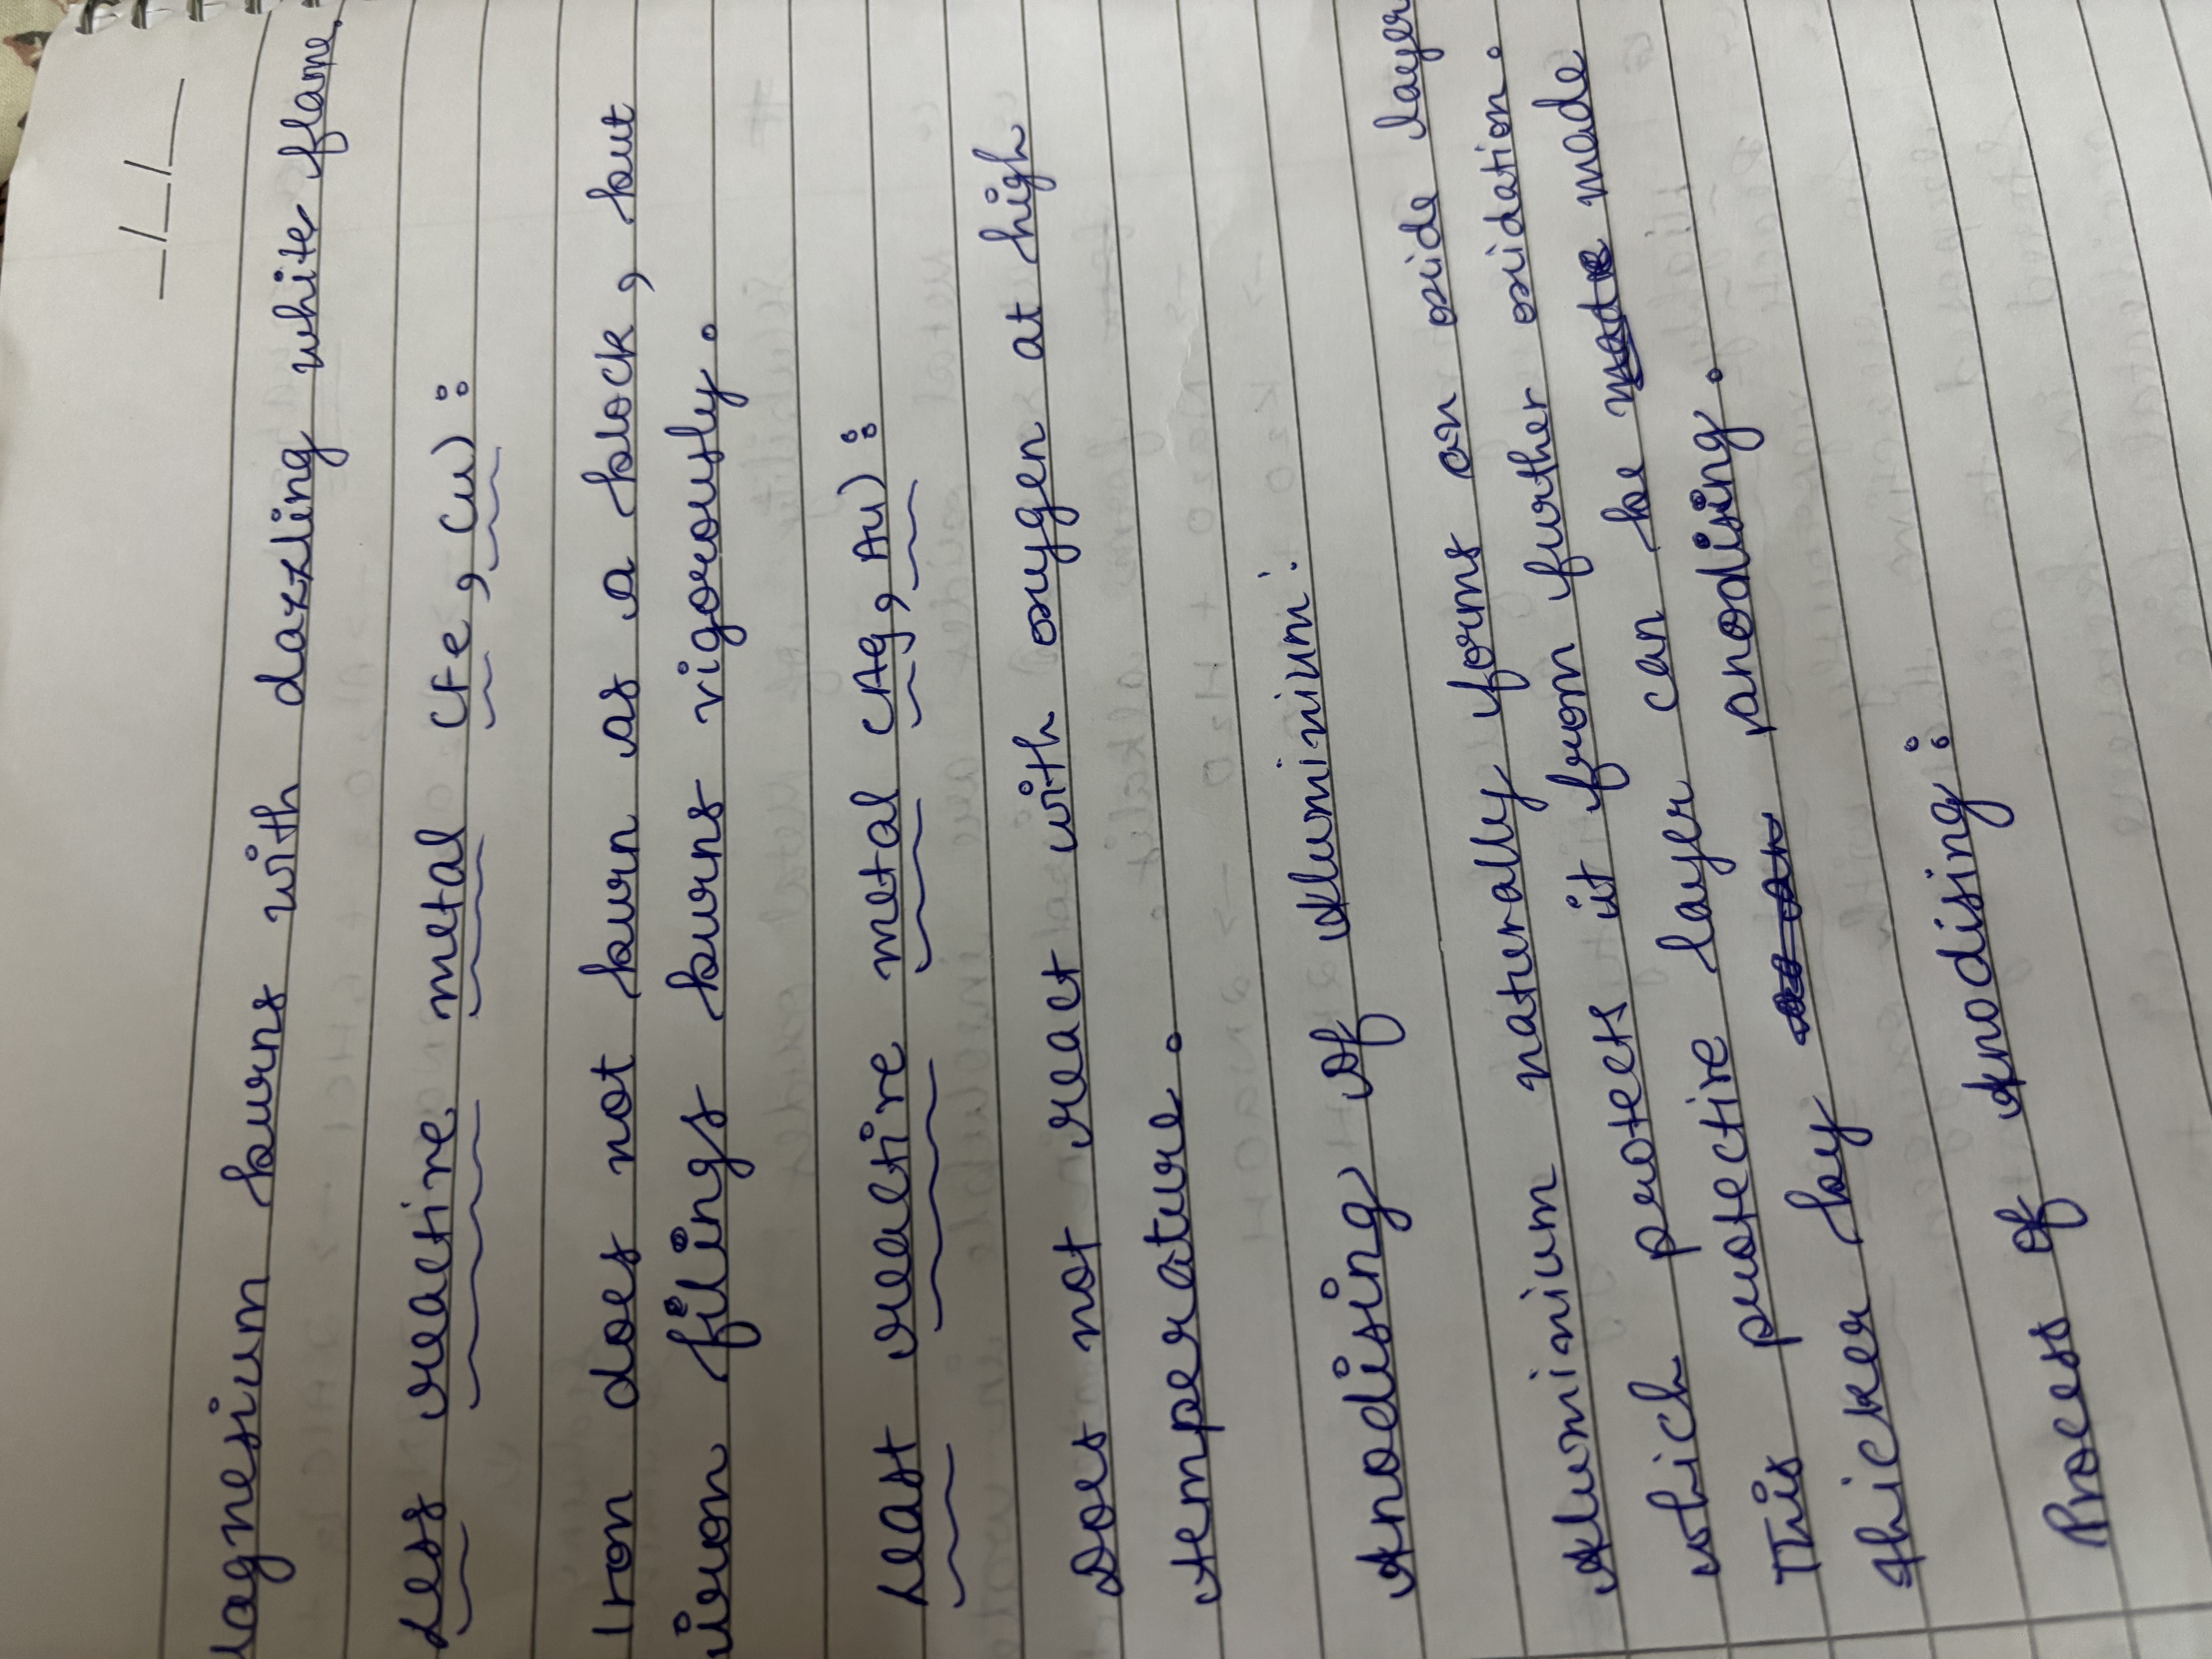 __/__/__
Magnesium burns with dazzling white flame.
Less reactive metal (Fe, Cu):
Iron does not burn as a block, but
iron filings burns vigorously.
Least reactive metal (Ag, Au):
Does not react with oxygen at high
temperature.
Anodising of Aluminium:
Aluminium naturally forms an oxide layer
which protects it from further oxidation.
This protective layer can be made made
thicker by anodising.
Process of Anodising: